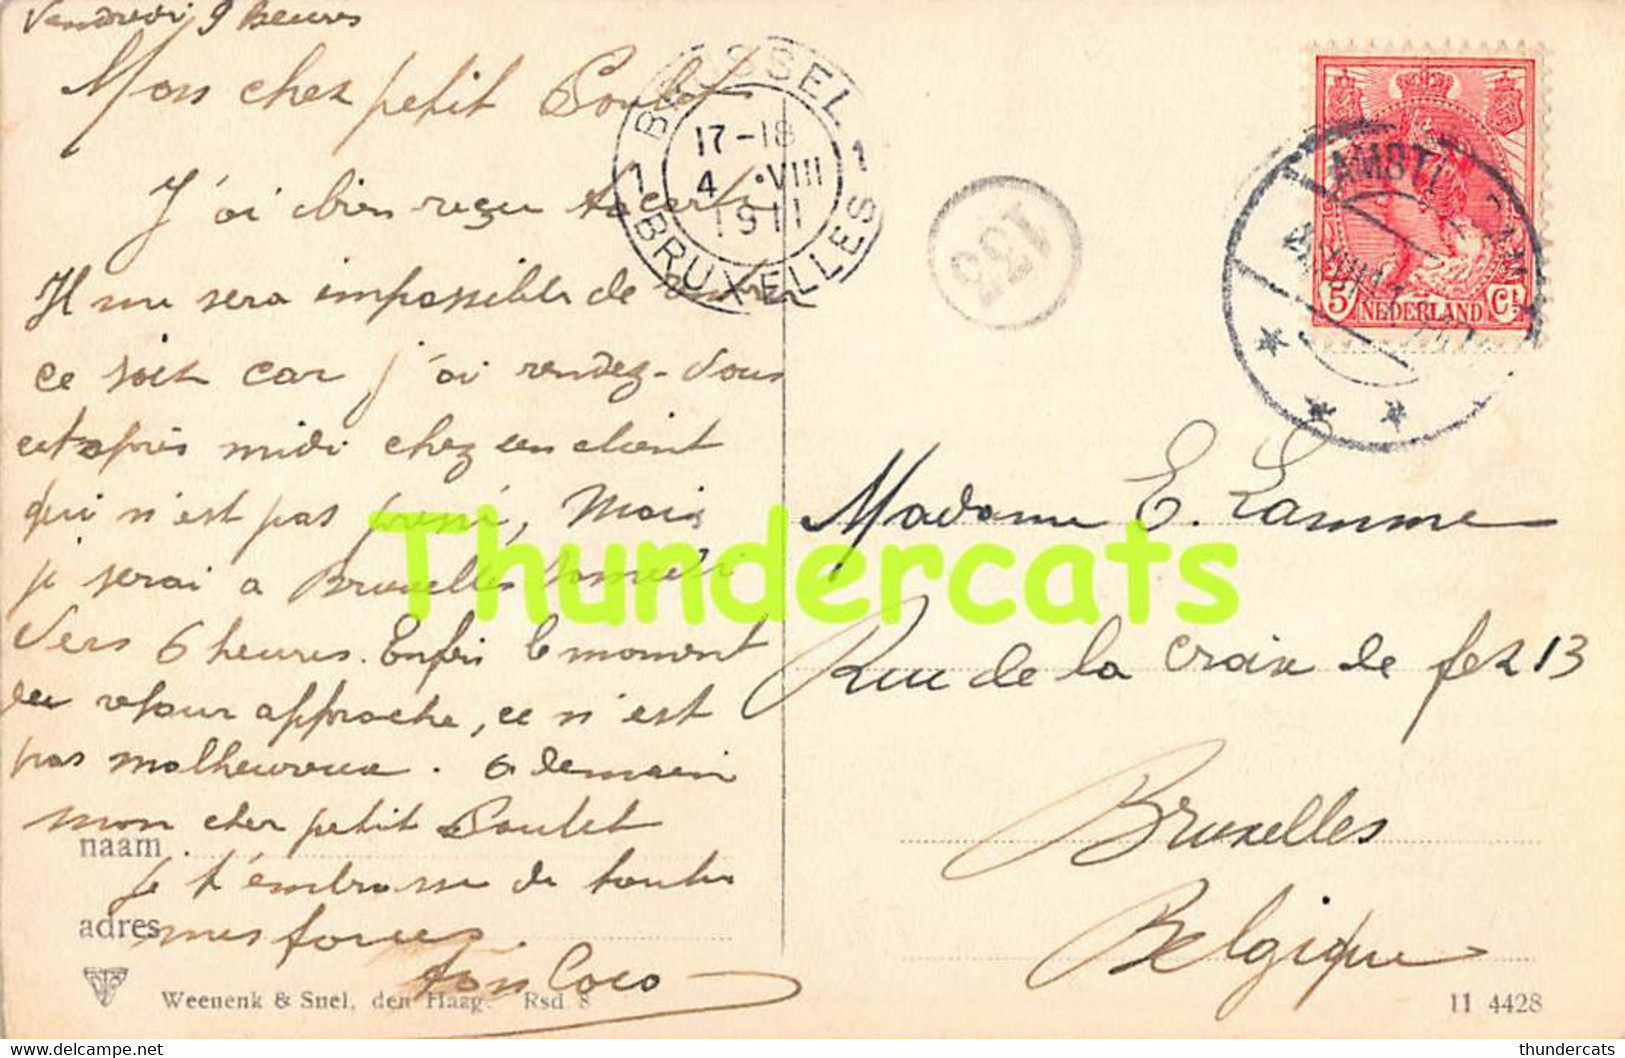 Vendredi 9 heures
Mon cher petit Poulet
J'ai bien reçu ta carte
Il me sera impossible de
ce soir car j'ai rendez-vous
cet après midi chez un client
qui n'est pas pressé, Mais
je serai a Bruxelles Samedi
vers 6 heures. Enfin le moment
du retour approche, ce n'est
pas malheureux. a demain
mon cher petit Poulet
Je t'embrasse de toutes
mes forces
ton Coco
naam
adres
Weenenk & Snel, den Haag. Rsd 8
BRUSSEL
1 1
17-18
4 •VIII
1911
BRUXELLES
135
AMSTERDAM
5 NEDERLAND Ct
Madame E. Lamme
Rue de la Croix de fer 13
Bruxelles
Belgique
11 4428
Thundercats
thundercats - delcampe.net
thundercats